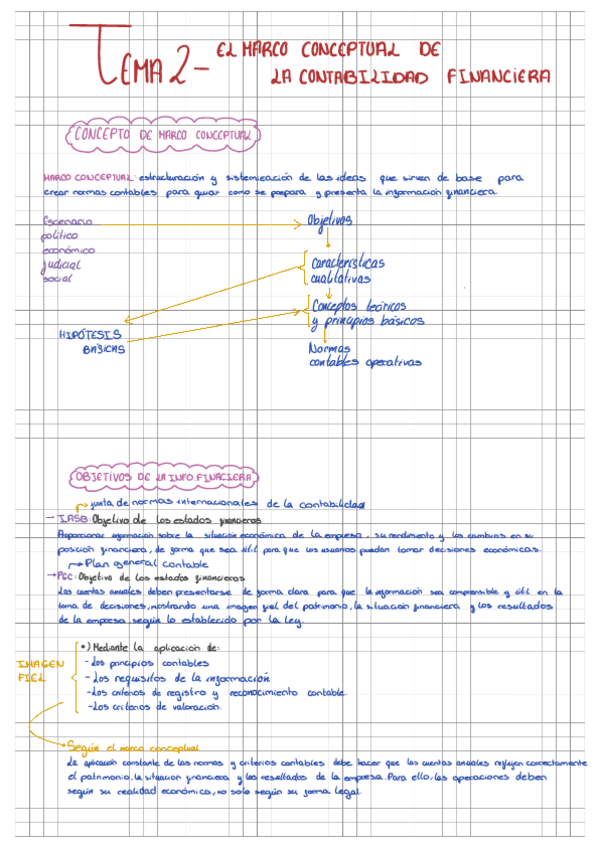 TEMA 2- EL MARCO CONCEPTUAL DE
LA CONTABILIDAD FINANCIERA
CONCEPTO DE MARCO CONCEPTUAL
MARCO CONCEPTUAL: estructuración y sistemización de las ideas que sirven de base para
crear normas contables para guiar como se prepara y presenta la información financiera.
Escenario
político
económico
judicial
social
Objetivos
Características
cualitativas
Conceptos teóricos
y principios básicos
HIPÓTESIS
BÁSICAS
Normas
contables operativas
OBJETIVOS DE LA INFO. FINACIERA
junta de normas internacionales de la contabilidad
- IASB: Objetivo de los estados financieros
Proporcionar información sobre la situación económica de la empresa, su rendimiento y los cambios en su
posición financiera, de forma que sea útil para que los usuarios puedan tomar decisiones económicas.
Plan general contable
PGC: Objetivo de los estados financieros
Las cuentas anuales deben presentarse de forma clara para que la información sea comprensible y útil en la
toma de decisiones, mostrando una imagen fiel del patrimonio, la situación financiera y los resultados
de la empresa, según lo establecido por la ley.
IMAGEN
FIEL
•) Mediante la aplicación de:
- Los principios contables
- Los requisitos de la información
- Los criterios de registro y reconocimiento contable.
- Los criterios de valoración.
Según el marco conceptual
La aplicación constante de las normas y criterios contables debe hacer que las cuentas anuales reflejen correctamente
el patrimonio, la situacion financiera y los resultados de la empresa. Para ello, las operaciones deben
según su realidad económica, no solo según su forma legal